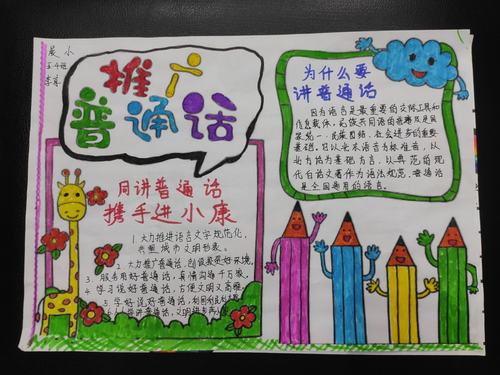 晨小
5.4班
推广
普通话
同讲普通话
携手进小康
1.大力推进语言文字规范化,
大力推广普通话,创设最更好环境,
3.服务用好普通话,真情沟通千万家。
4.学习说好普通话,方便文明又高雅。
5.学好说好普通话,
为什么要
讲普通话
因为语言是最重要的交际工具和
信息载体,民族共同语的推广及是国
家统一,民族团结,社会进步的重要
基础,它以北京语音为标准音,以
北方话为基础方言,以典范的现
代白话文著作为语法规范,普通话
是全国通用的语言。